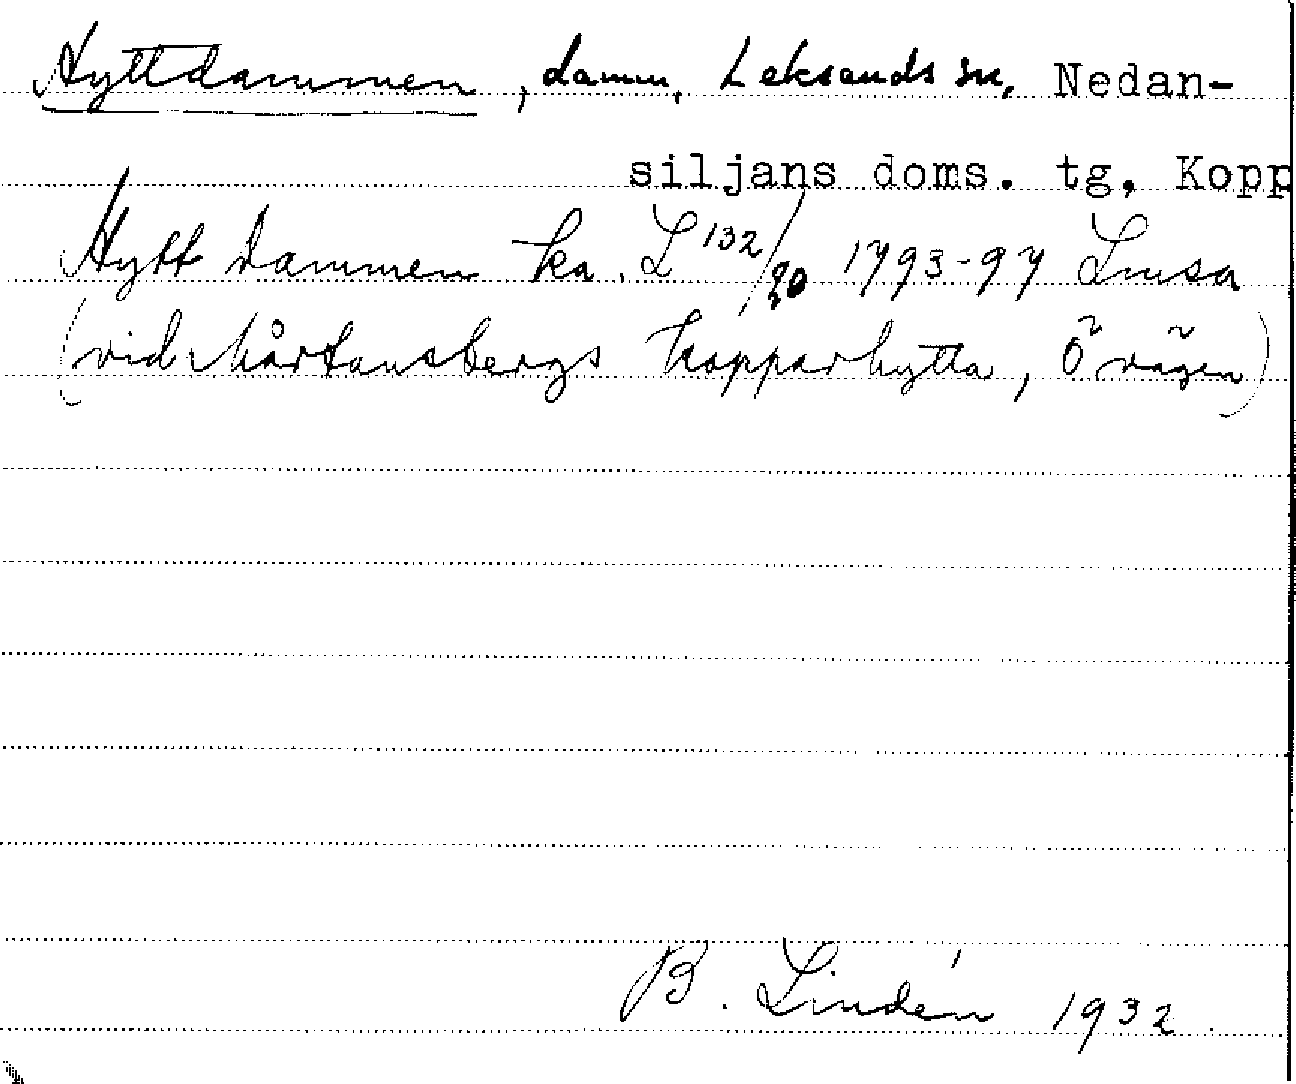 Hyttdammen, damm, Leksands sn, Nedan-
siljans doms. tg, Kopp
Hytt Dammen ka. L 132/20 1793-97 Linsa
(vid Mårtansbergs Kopparhytta, Ö vägen)
B. Lindén 1932.